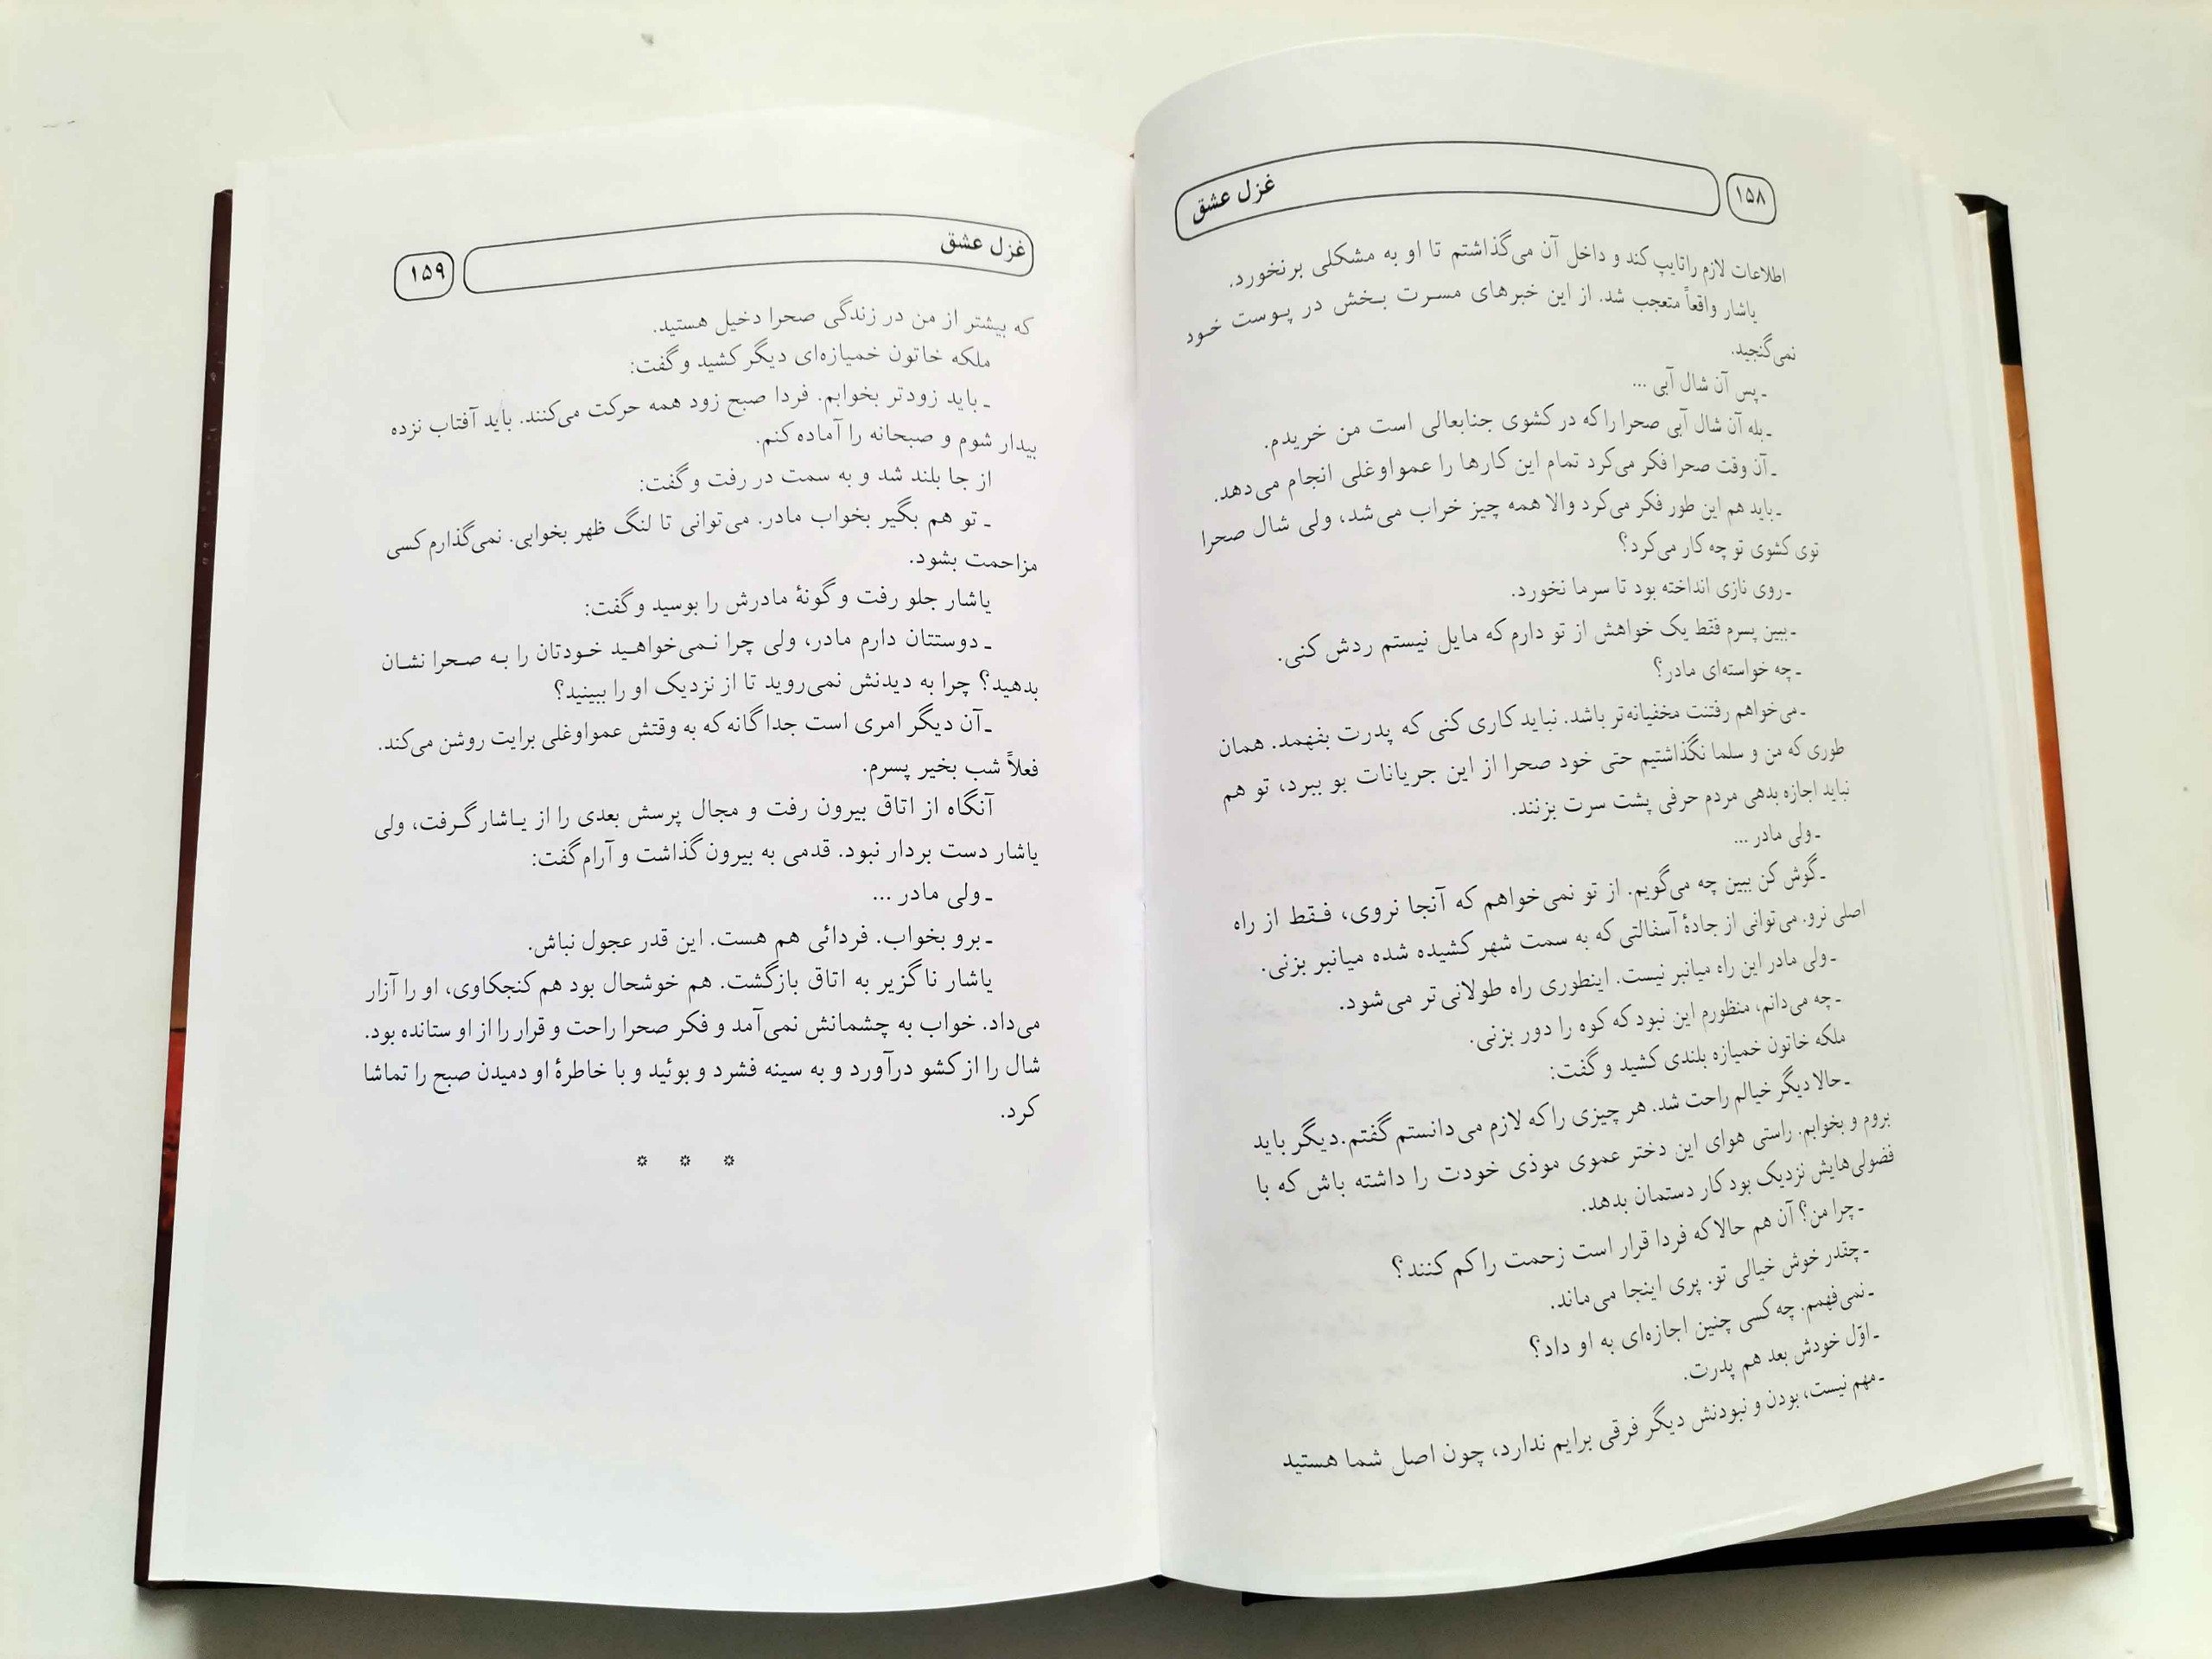 ۱۵۸
غزل عشق
اطلاعات لازم را تایپ کند و داخل آن می‌گذاشتم تا او به مشکلی برنخورد.
یاشار واقعاً متعجب شد. از این خبرهای مسرت بخش در پوست خود
نمی‌گنجید.
ـ پس آن شال آبی ...
ـ بله آن شال آبی صحرا را که در کشوی جنابعالی است من خریدم.
ـ آن وقت صحرا فکر می‌کرد تمام این کارها را عمواوغلی انجام می‌دهد.
ـ باید هم این طور فکر می‌کرد والا همه چیز خراب می‌شد، ولی شال صحرا
توی کشوی تو چه کار می‌کرد؟
ـ روی نازی انداخته بود تا سرما نخورد.
ـ ببین پسرم فقط یک خواهش از تو دارم که مایل نیستم ردش کنی.
ـ چه خواسته‌ای مادر؟
ـ می‌خواهم رفتنت مخفیانه‌تر باشد. نباید کاری کنی که پدرت بفهمد. همان
طوری که من و سلما نگذاشتیم حتی خود صحرا از این جریانات بو ببرد، تو هم
نباید اجازه بدهی مردم حرفی پشت سرت بزنند.
ـ ولی مادر ...
ـ گوش کن ببین چه می‌گویم. از تو نمی‌خواهم که آنجا نروی، فقط از راه
اصلی نرو. می‌توانی از جادهٔ آسفالتی که به سمت شهر کشیده شده میانبر بزنی.
ـ ولی مادر این راه میانبر نیست. اینطوری راه طولانی‌تر می‌شود.
ـ چه می‌دانم، منظورم این نبود که کوه را دور بزنی.
ملکه خاتون خمیازه بلندی کشید و گفت:
ـ حالا دیگر خیالم راحت شد. هر چیزی را که لازم می‌دانستم گفتم.دیگر باید
بروم و بخوابم. راستی هوای این دختر عموی موذی خودت را داشته باش که با
فضولی‌هایش نزدیک بود کار دستمان بدهد.
ـ چرا من؟ آن هم حالا که فردا قرار است زحمت را کم کنند؟
ـ چقدر خوش خیالی تو. پری اینجا می‌ماند.
ـ نمی‌فهمم. چه کسی چنین اجازه‌ای به او داد؟
ـ اوّل خودش بعد هم پدرت.
ـ مهم نیست، بودن و نبودنش دیگر فرقی برایم ندارد، چون اصل شما هستید
غزل عشق
۱۵۹
که بیشتر از من در زندگی صحرا دخیل هستید.
ملکه خاتون خمیازه‌ای دیگر کشید و گفت:
ـ باید زودتر بخوابم. فردا صبح زود همه حرکت می‌کنند. باید آفتاب نزده
بیدار شوم و صبحانه را آماده کنم.
از جا بلند شد و به سمت در رفت و گفت:
ـ تو هم بگیر بخواب مادر. می‌توانی تا لنگ ظهر بخوابی. نمی‌گذارم کسی
مزاحمت بشود.
یاشار جلو رفت و گونهٔ مادرش را بوسید و گفت:
ـ دوستتان دارم مادر، ولی چرا نمی‌خواهید خودتان را به صحرا نشان
بدهید؟ چرا به دیدنش نمی‌روید تا از نزدیک او را ببینید؟
ـ آن دیگر امری است جداگانه که به وقتش عمواوغلی برایت روشن می‌کند.
فعلاً شب بخیر پسرم.
آنگاه از اتاق بیرون رفت و مجال پرسش بعدی را از یاشار گرفت، ولی
یاشار دست بردار نبود. قدمی به بیرون گذاشت و آرام گفت:
ـ ولی مادر ...
ـ برو بخواب. فردائی هم هست. این قدر عجول نباش.
یاشار ناگزیر به اتاق بازگشت. هم خوشحال بود هم کنجکاوی، او را آزار
می‌داد. خواب به چشمانش نمی‌آمد و فکر صحرا راحت و قرار را از او ستانده بود.
شال را از کشو درآورد و به سینه فشرد و بوئید و با خاطرهٔ او دمیدن صبح را تماشا
کرد.
* * *